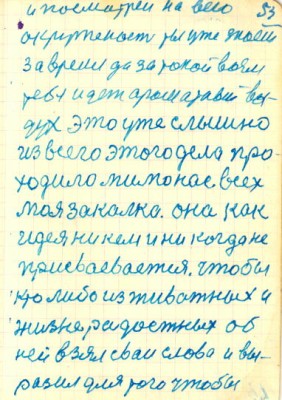 и посмотрел на всю 53
окружность ты уже знаеш
за время да за такой воям
тебя идет ароматавий воз-
дух это уже слышно
из всего этого дела про-
ходило мимо нас всех
моя закалка. она как
идея ни кем и ни когда не
присваевается. чтобы
кто либо из животных и
жизнерадостных об
ней взял сваи слова и вы-
разил для того чтобы